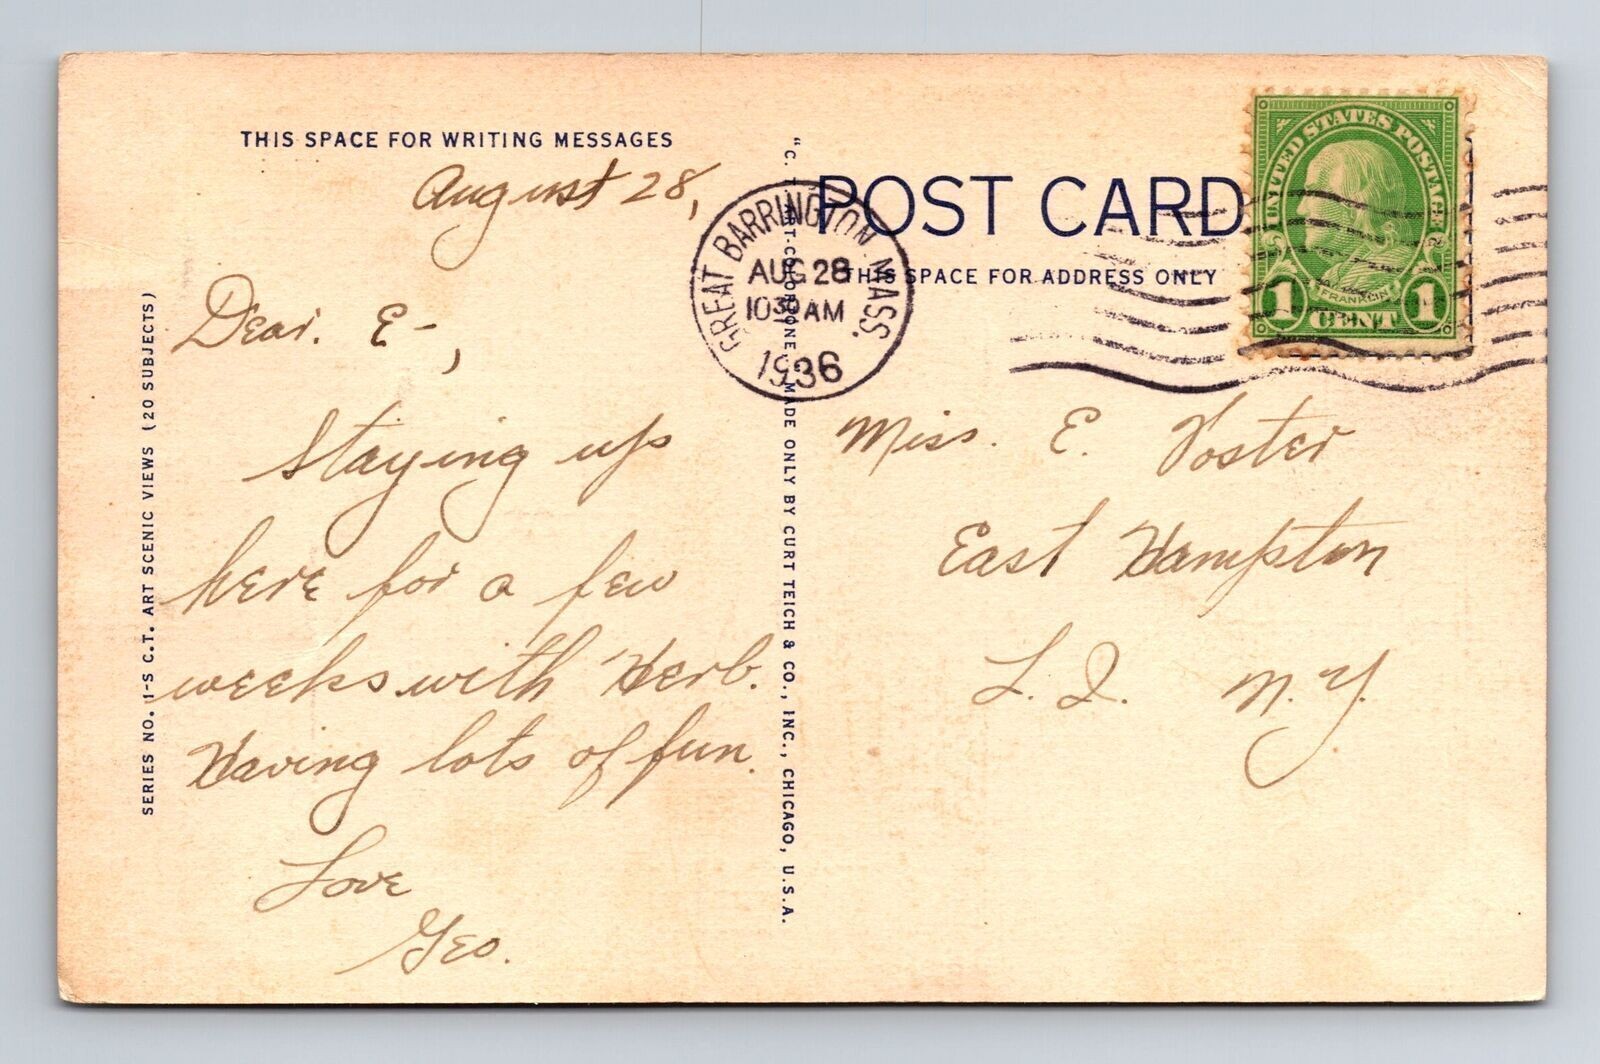 THIS SPACE FOR WRITING MESSAGES
August 28,
Dear. E-,
Staying up
here for a few
weeks with Herb.
Having lots of fun.
Love
Geo.
SERIES NO. 1-S C.T. ART SCENIC VIEWS (20 SUBJECTS)
"C. T. ART-COLORTONE MADE ONLY BY CURT TEICH & CO., INC., CHICAGO, U.S.A.
GREAT BARRINGTON MASS.
AUG 28
10 30 AM
1936
POST CARD
THIS SPACE FOR ADDRESS ONLY
UNITED STATES POSTAGE
FRANKLIN
1 CENT 1
Miss. E. Voster
East Hampton
L. I. N. Y.